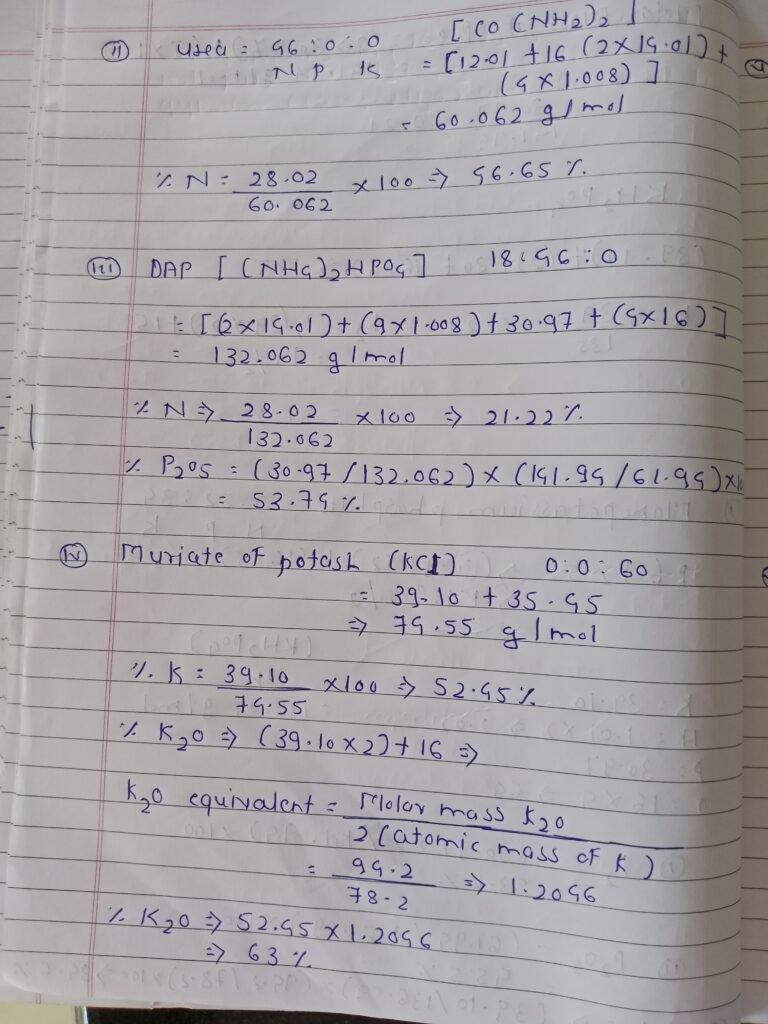 [CO(NH2)2]
(ii) Urea = 46:0:0
N P K = [12.01 + 16 (2×14.01) +
(4×1.008)]
= 60.062 g/mol
% N = 28.02 / 60.062 ×100 ⇒ 46.65 %
(iii) DAP [(NH4)2HPO4] 18:46:0
= [(2×14.01) + (9×1.008) + 30.97 + (4×16)]
= 132.062 g/mol
% N ⇒ 28.02 / 132.062 ×100 ⇒ 21.22 %
% P2O5 = (30.97/132.062) × (141.94/61.94)×10
= 53.74 %
(iv) Muriate of potash (KCl) 0:0:60
= 39.10 + 35.45
⇒ 74.55 g/mol
% K = 39.10 / 74.55 ×100 ⇒ 52.45 %
% K2O ⇒ (39.10×2)+16 ⇒
K2O equivalent = Molar mass K2O / 2 (atomic mass of K)
= 94.2 / 78.2 ⇒ 1.2046
% K2O ⇒ 52.45 × 1.2046
⇒ 63 %